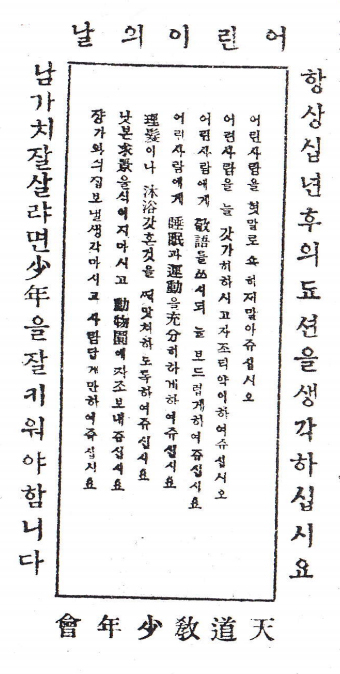 어린이의날
항상십년후의됴션을생각하십시요
어린사람을 헛말로 속히지말아쥬십시오
어린사람을 늘 갓가히하시고자조리약이하여쥬십시오
어린사람에게 敬語를쓰시되 늘 부드럽게하여쥬십시요
어린사람에게 睡眠과運動을充分히하게하여쥬십시요
理髮이나 沐浴갓흔것을 ᄯᅢ맛쳐하도록하여쥬십시요
낫븐求景을식히지마시고 動物園에자조보내쥬십시요
쟝가와싀집보낼생각마시고 사람답게만하여쥬십시요
남가치잘살랴면少年을잘키워야함니다
天道敎少年會